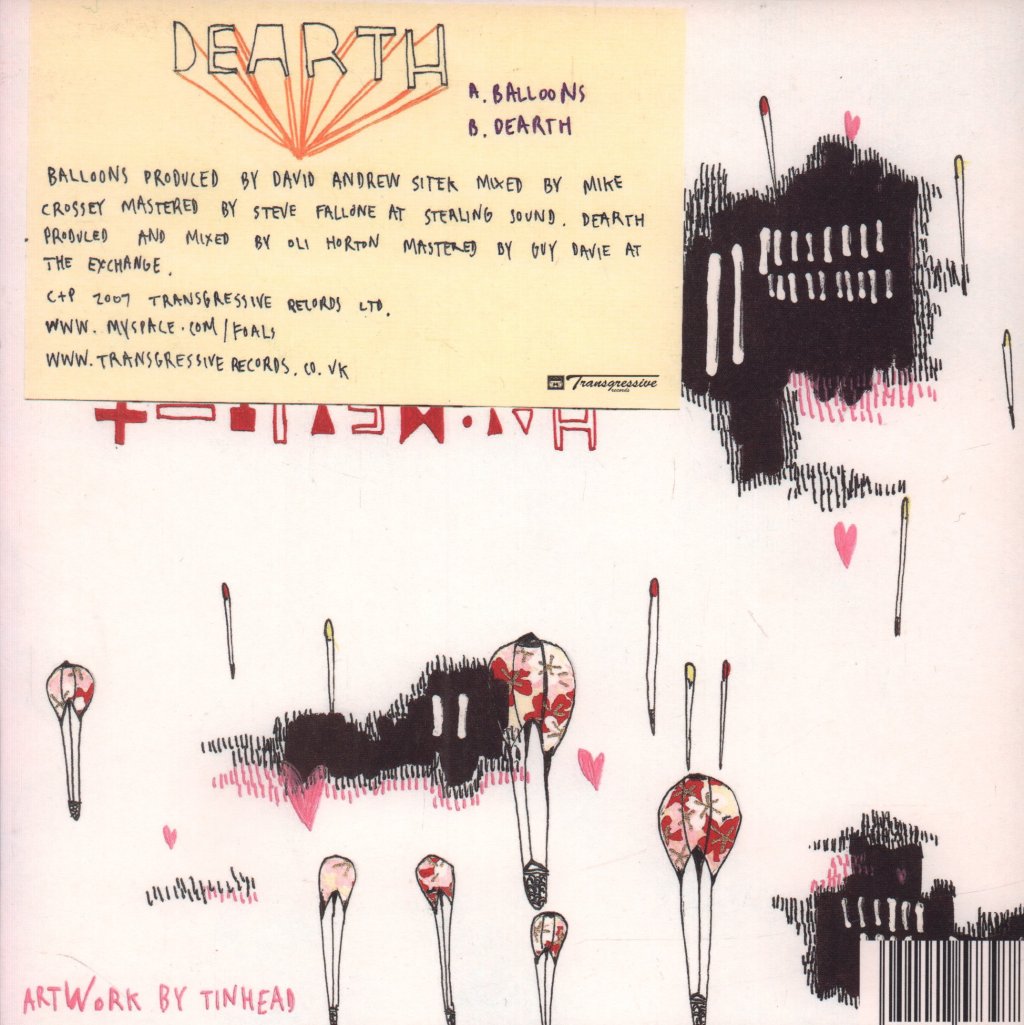 DEARTH
A. BALLOONS
B. DEARTH
BALLOONS PRODUCED BY DAVID ANDREW SITEK MIXED BY MIKE
CROSSEY MASTERED BY STEVE FALLONE AT STERLING SOUND. DEARTH
PRODUCED AND MIXED BY OLI HORTON MASTERED BY GUY DAVIE AT
THE EXCHANGE.
C+P 2007 TRANSGRESSIVE RECORDS LTD.
WWW.MYSPACE.COM/FOALS
WWW.TRANSGRESSIVERECORDS.CO.UK
Transgressive
records
ARTWORK BY TINHEAD